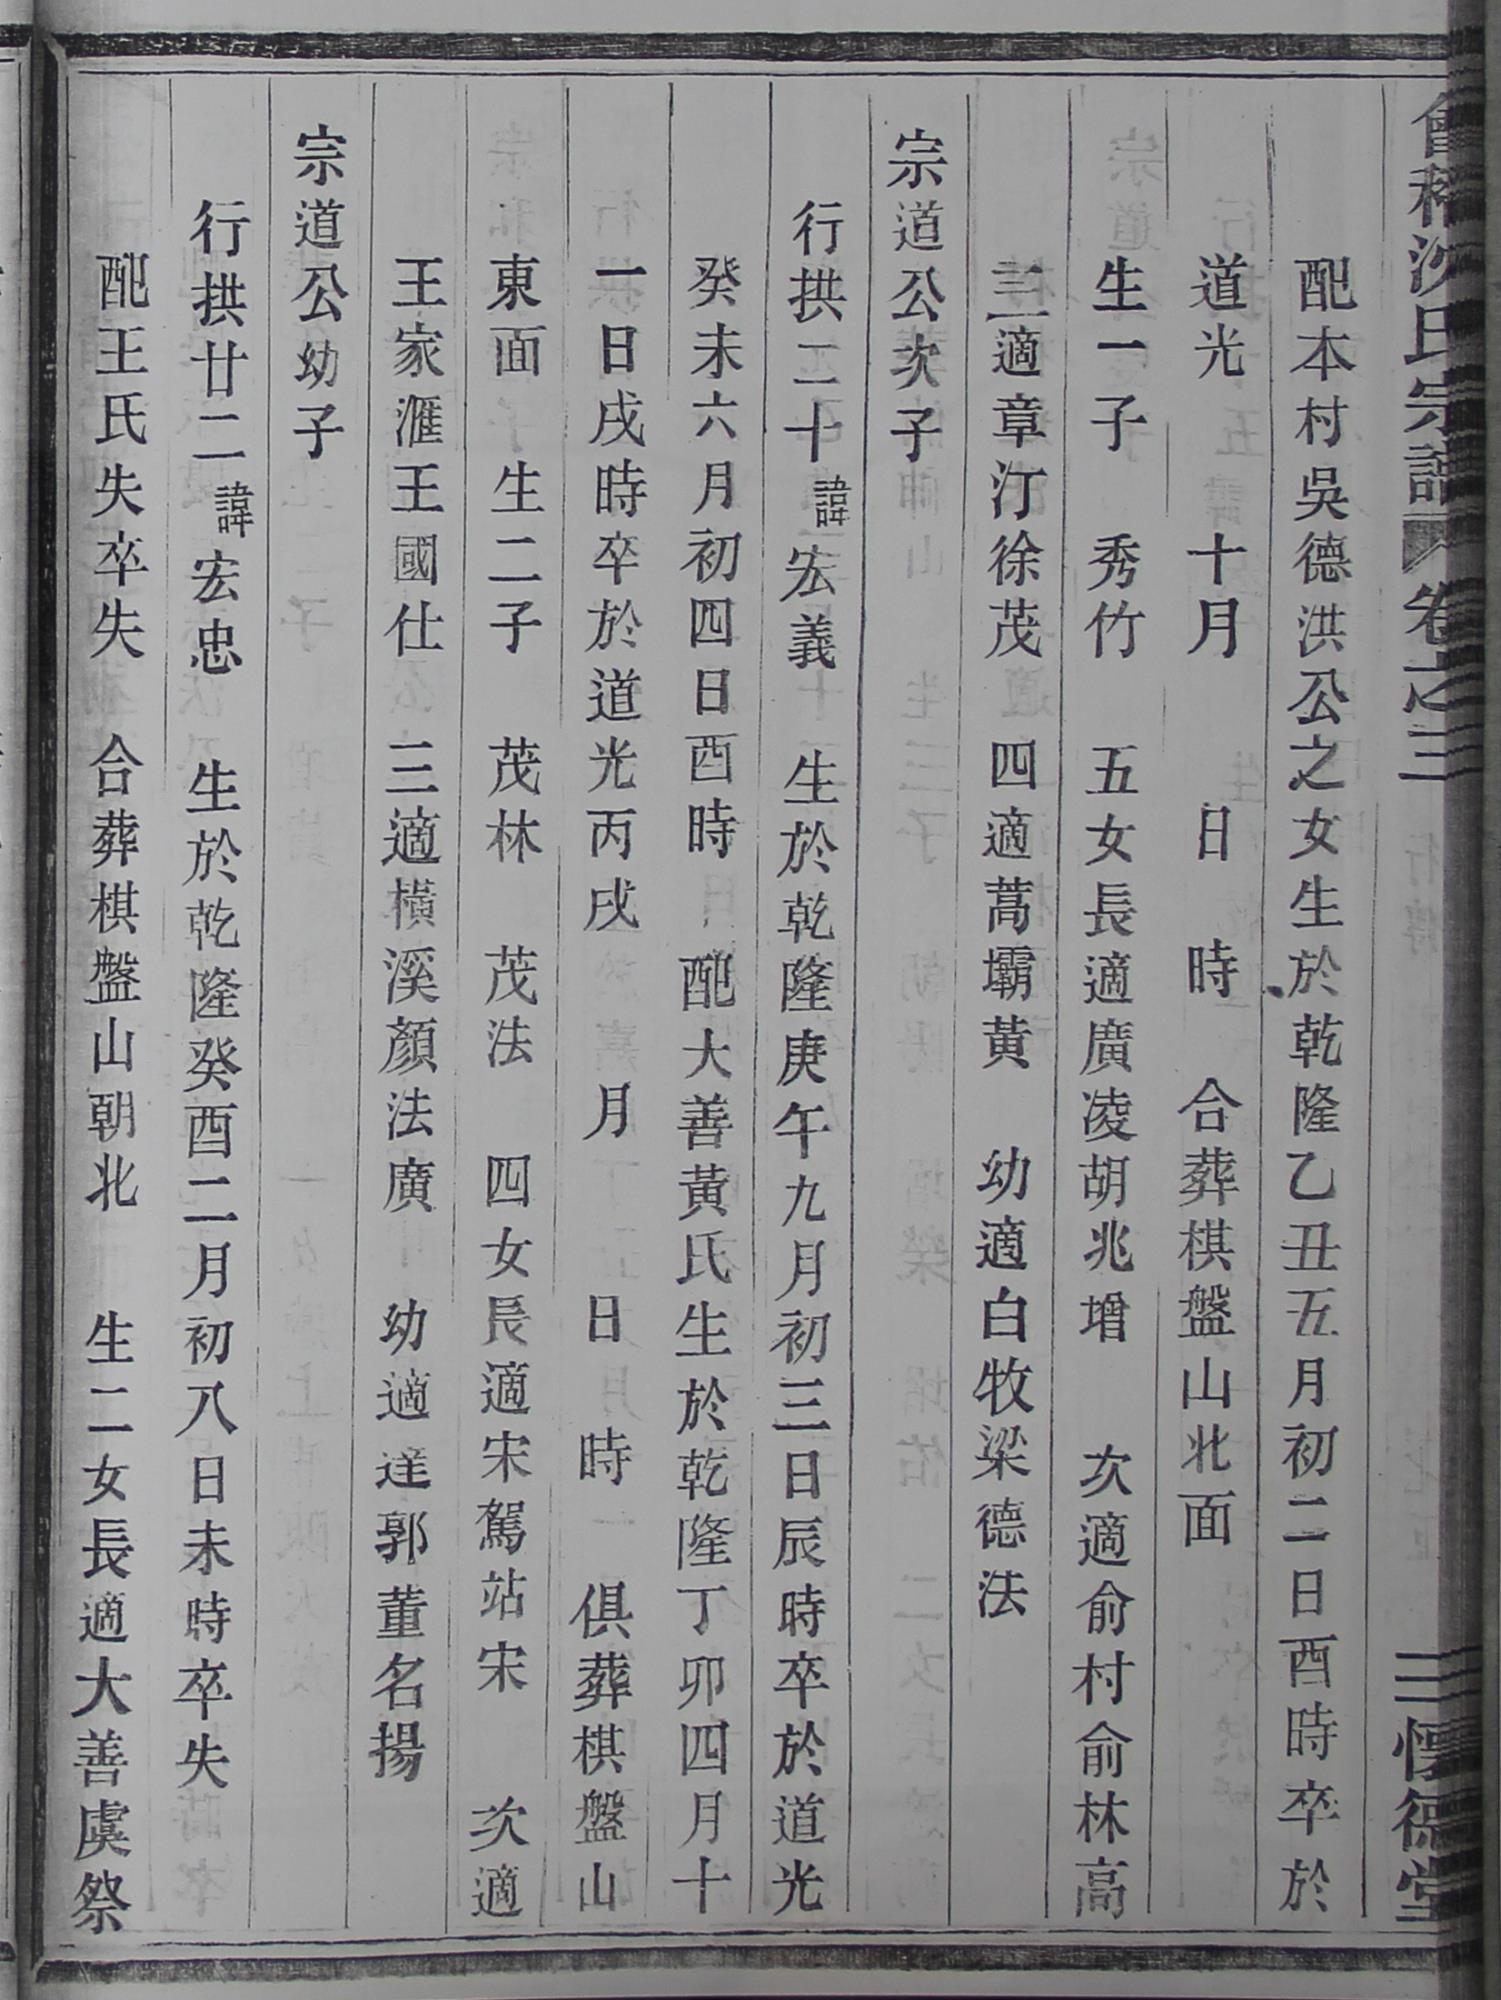 會稽沈氏宗譜 卷之三 二 德堂
配本村吳德洪公之女生於乾隆乙丑五月初二日酉時卒於
道光 十月 日 時 合葬棋盤山北面
生一子 秀竹 五女長適廣凌胡兆增 次適俞村俞林高
三適章汀徐茂 四適蒿壩黃 幼適白牧梁德法
宗道公次子
行拱二十諱宏義 生於乾隆庚午九月初三日辰時卒於道光
癸未六月初四日酉時 配大善黃氏生於乾隆丁卯四月十
一日戌時卒於道光丙戌 月 日 時 俱葬棋盤山
東面 生二子 茂林 茂法 四女長適宋駕站宋 次適
王家滙王國仕 三適橫溪顏法廣 幼適達郭董名揚
宗道公幼子
行拱廿二諱宏忠 生於乾隆癸酉二月初八日未時卒失
配王氏失卒失 合葬棋盤山朝北 生二女長適大善虞祭